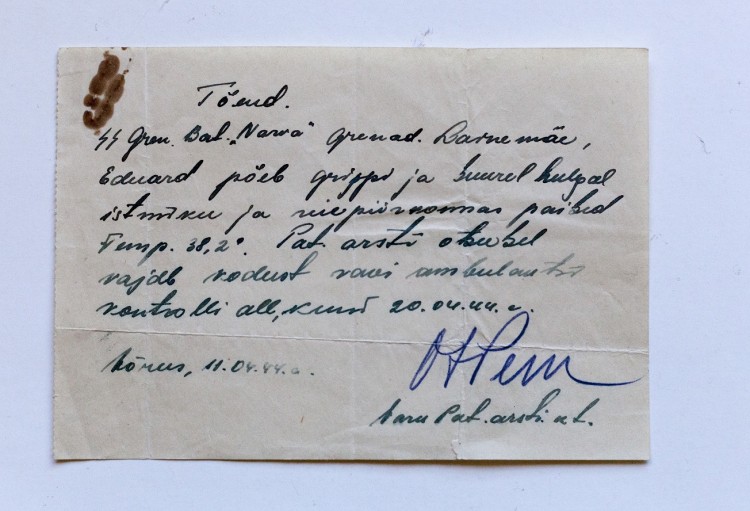 Tõend.
SS Gren. Bat. „Narva" grenad. Barnemäe,
Eduard põeb grippi ja suurel hulgal
istmiku ja paised
Temp. 38,2°. Pat. arsti otsusel
vajab kodust ravi ambulants
kontrolli all, kuni 20.04.44.a.
Võrus, 11.04.44.a.
Pat. arsti. a.t.